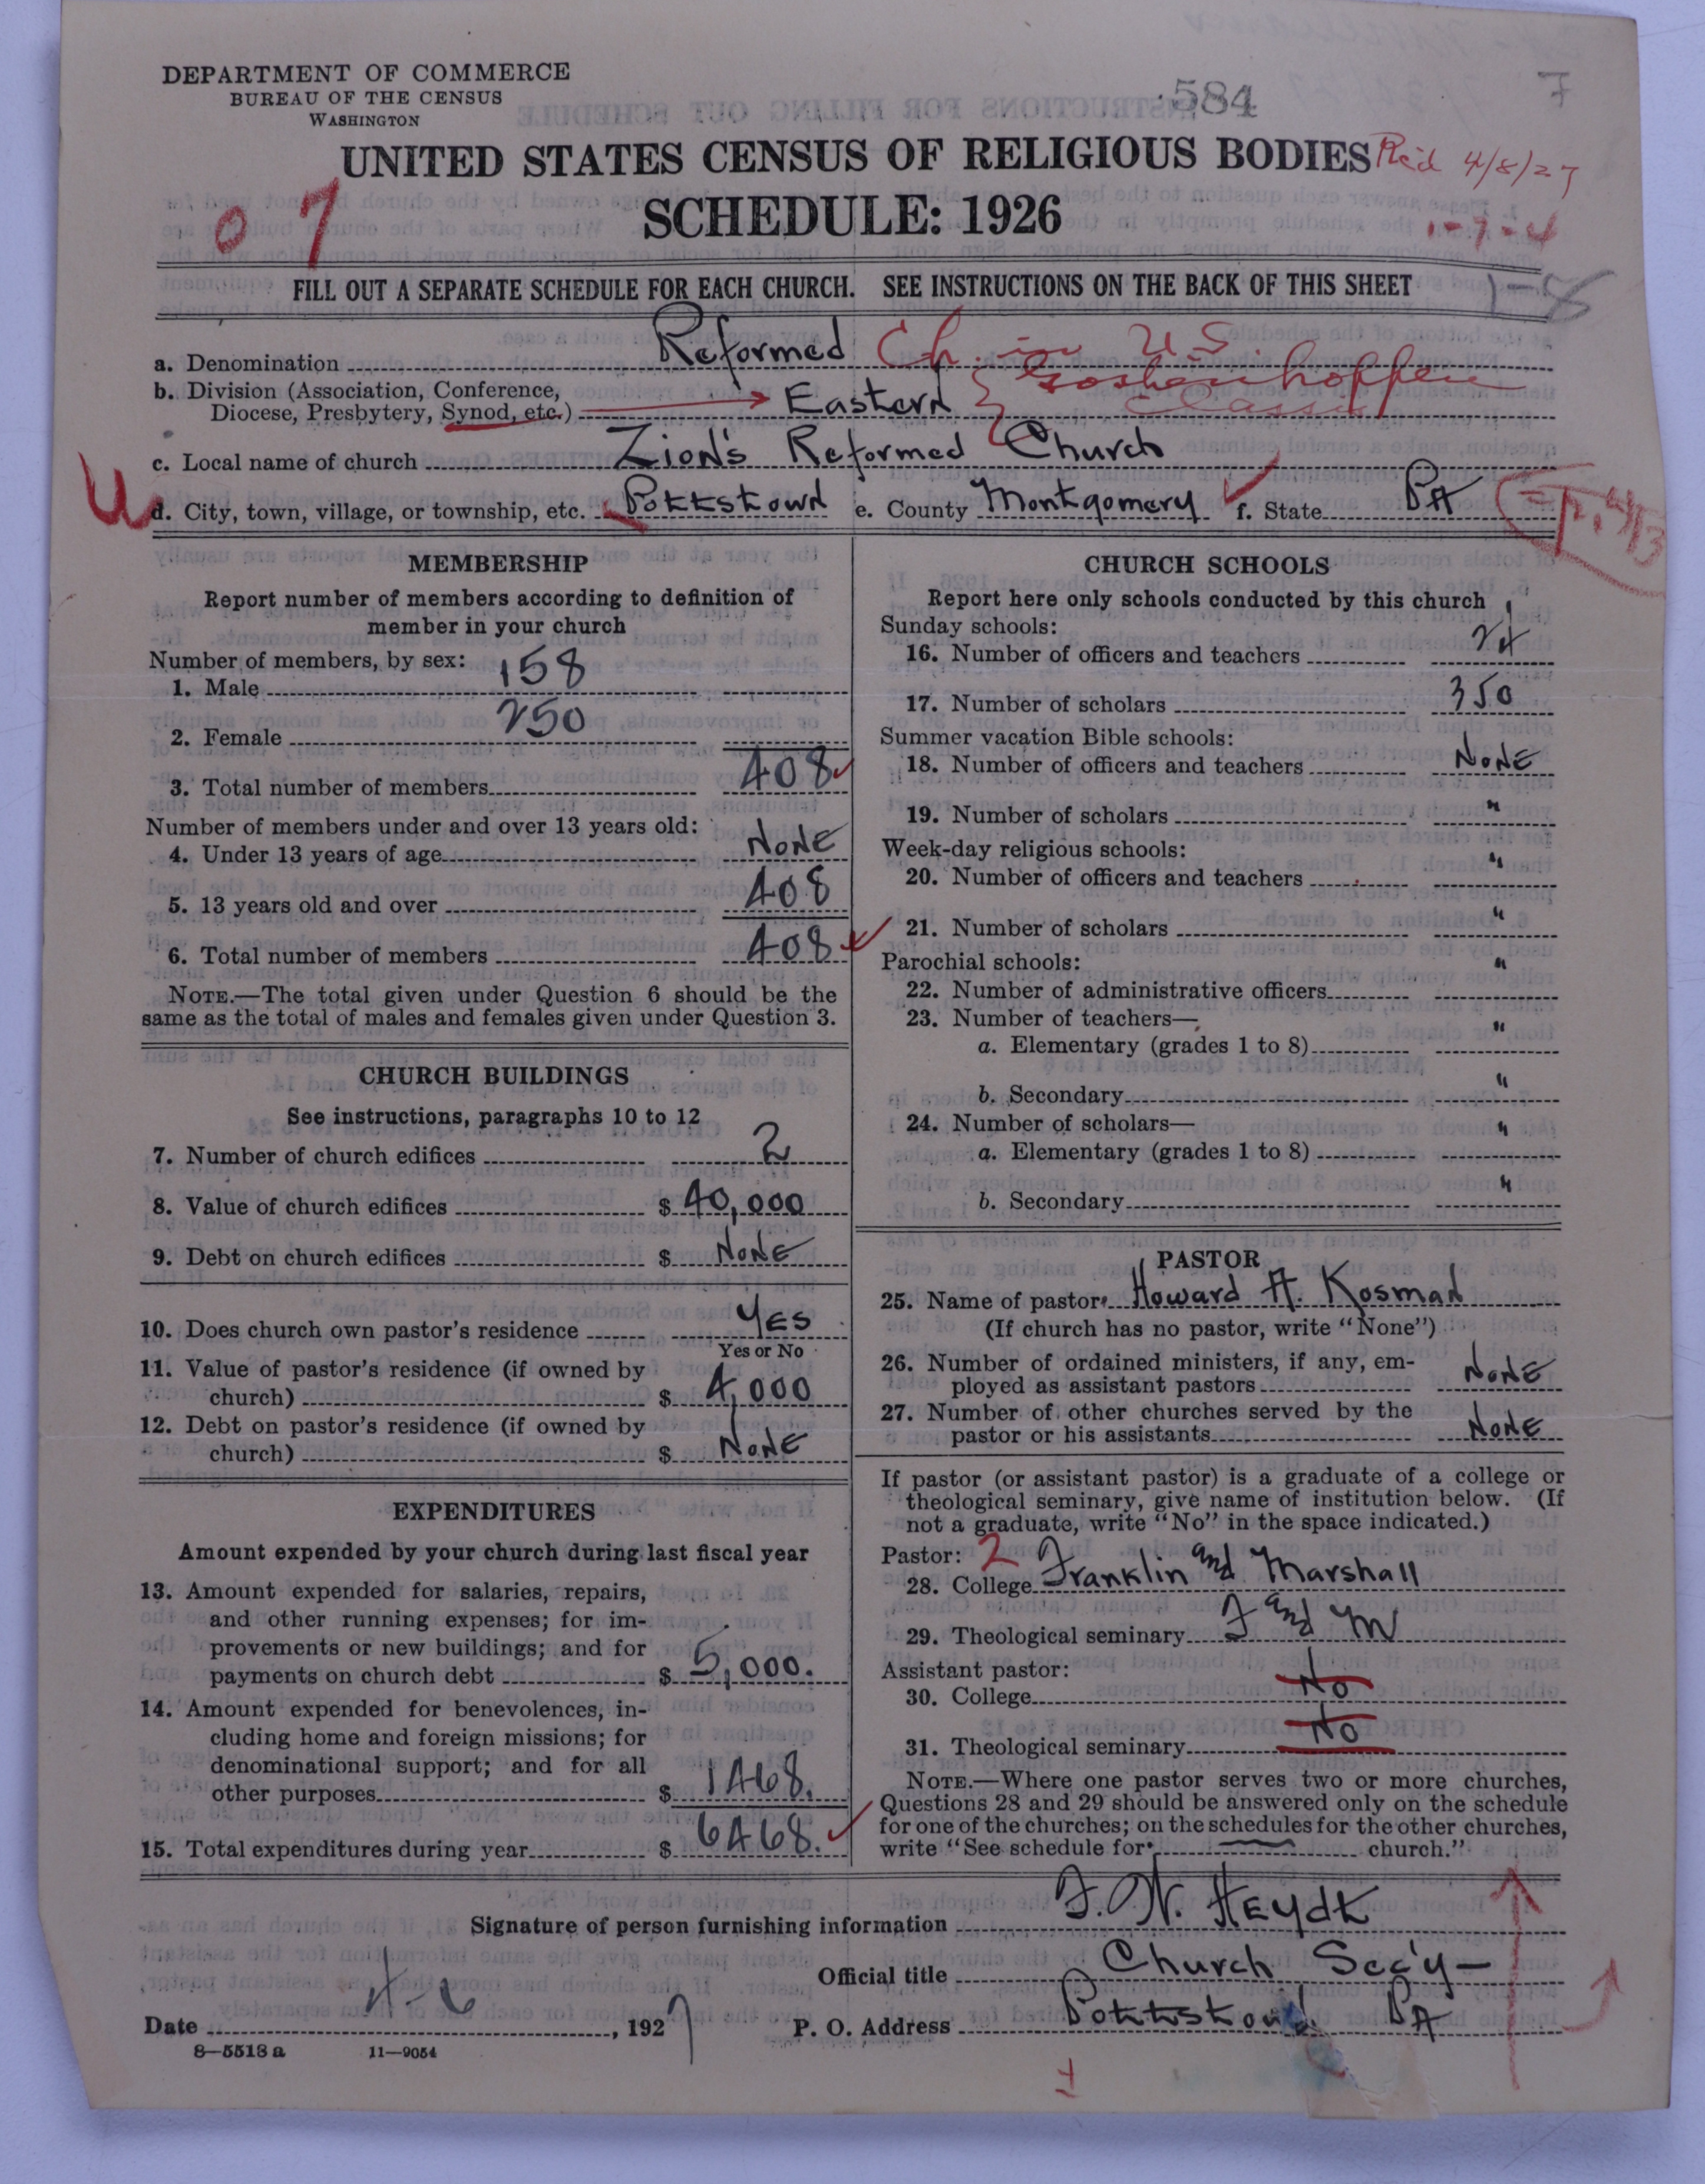 DEPARTMENT OF COMMERCE
BUREAU OF THE CENSUS
WASHINGTON
584
F
UNITED STATES CENSUS OF RELIGIOUS BODIES Rc'd 4/8/27
07 SCHEDULE: 1926 1-7-4
FILL OUT A SEPARATE SCHEDULE FOR EACH CHURCH. SEE INSTRUCTIONS ON THE BACK OF THIS SHEET 1-8
a. Denomination Reformed Ch. in U.S.
b. Division (Association, Conference, Goshenhoppen
Diocese, Presbytery, Synod, etc.) Eastern Classis
c. Local name of church Zion's Reformed Church
d. City, town, village, or township, etc. Pottstown e. County Montgomery f. State PA
MEMBERSHIP
Report number of members according to definition of
member in your church
Number of members, by sex:
1. Male 158
2. Female 250
3. Total number of members 408
Number of members under and over 13 years old:
4. Under 13 years of age None
5. 13 years old and over 408
6. Total number of members 408
NOTE.—The total given under Question 6 should be the
same as the total of males and females given under Question 3.
CHURCH BUILDINGS
See instructions, paragraphs 10 to 12
7. Number of church edifices 2
8. Value of church edifices $ 40,000
9. Debt on church edifices $ None
10. Does church own pastor's residence Yes
Yes or No
11. Value of pastor's residence (if owned by
church) $ 4,000
12. Debt on pastor's residence (if owned by
church) $ None
EXPENDITURES
Amount expended by your church during last fiscal year
13. Amount expended for salaries, repairs,
and other running expenses; for im-
provements or new buildings; and for
payments on church debt $ 5,000.
14. Amount expended for benevolences, in-
cluding home and foreign missions; for
denominational support; and for all
other purposes $ 1468.
15. Total expenditures during year $ 6468.
CHURCH SCHOOLS
Report here only schools conducted by this church
Sunday schools:
16. Number of officers and teachers 24
17. Number of scholars 350
Summer vacation Bible schools:
18. Number of officers and teachers None
19. Number of scholars "
Week-day religious schools:
20. Number of officers and teachers "
21. Number of scholars "
Parochial schools:
22. Number of administrative officers "
23. Number of teachers—
a. Elementary (grades 1 to 8) "
b. Secondary "
24. Number of scholars—
a. Elementary (grades 1 to 8) "
b. Secondary "
PASTOR
25. Name of pastor Howard A. Kosman
(If church has no pastor, write "None")
26. Number of ordained ministers, if any, em-
ployed as assistant pastors None
27. Number of other churches served by the
pastor or his assistants None
If pastor (or assistant pastor) is a graduate of a college or
theological seminary, give name of institution below. (If
not a graduate, write "No" in the space indicated.)
Pastor: 2
28. College Franklin and Marshall
29. Theological seminary F and M
Assistant pastor:
30. College No
31. Theological seminary No
NOTE.—Where one pastor serves two or more churches,
Questions 28 and 29 should be answered only on the schedule
for one of the churches; on the schedules for the other churches,
write "See schedule for church."
Signature of person furnishing information F. W. Heydt
Official title Church Sec'y—
Date 4-6, 1927 P. O. Address Pottstown PA
8—5518 a 11—9054